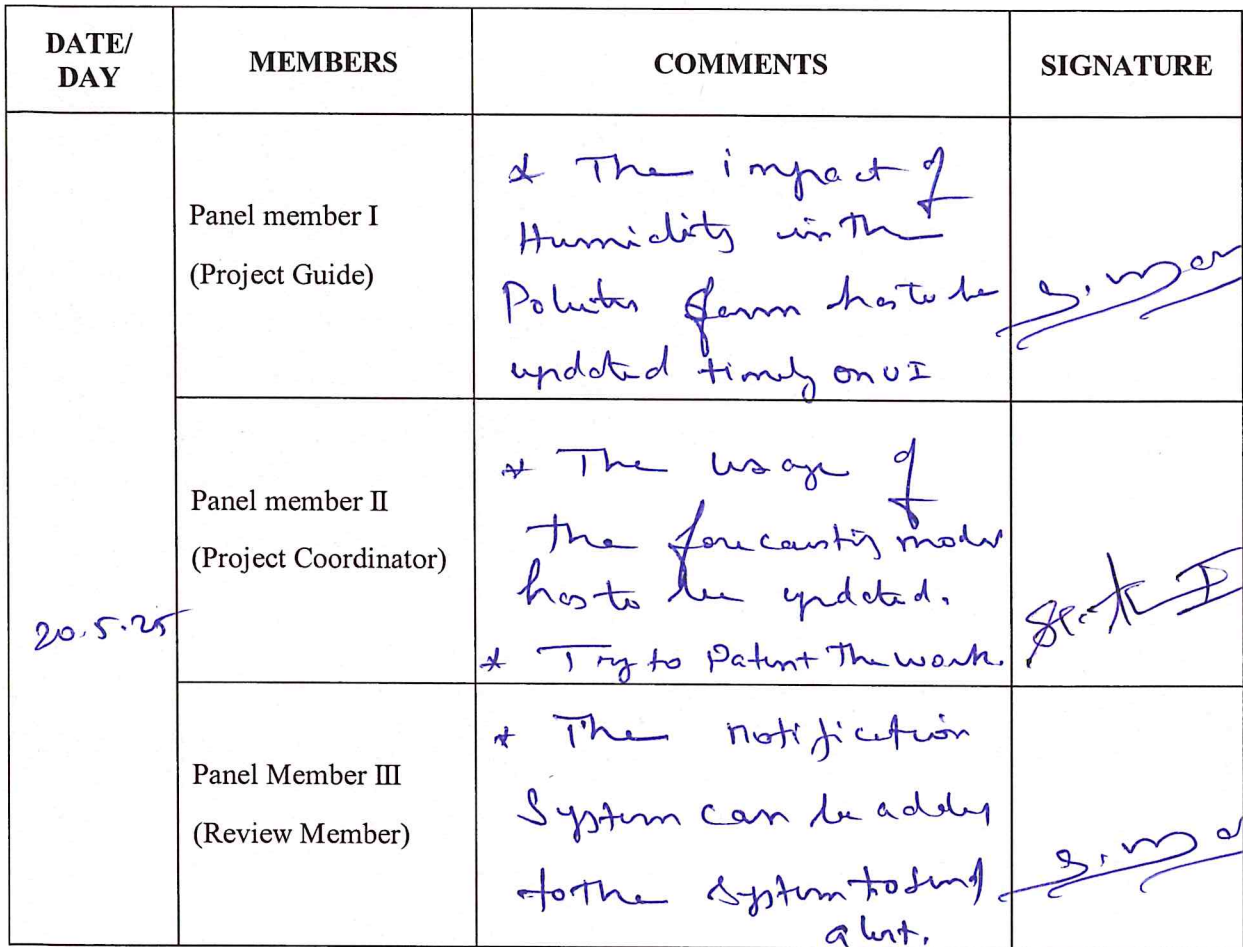 DATE/
DAY
MEMBERS
COMMENTS
SIGNATURE
20.5.25
Panel member I
(Project Guide)
* The impact of
Humidity in the
farm has to be
updated timely on UI
Panel member II
(Project Coordinator)
* The usage of
the forecasting model
has to be updated.
* Try to Patent The work.
Panel Member III
(Review Member)
* The notification
System can be added
to the system to send
alert.